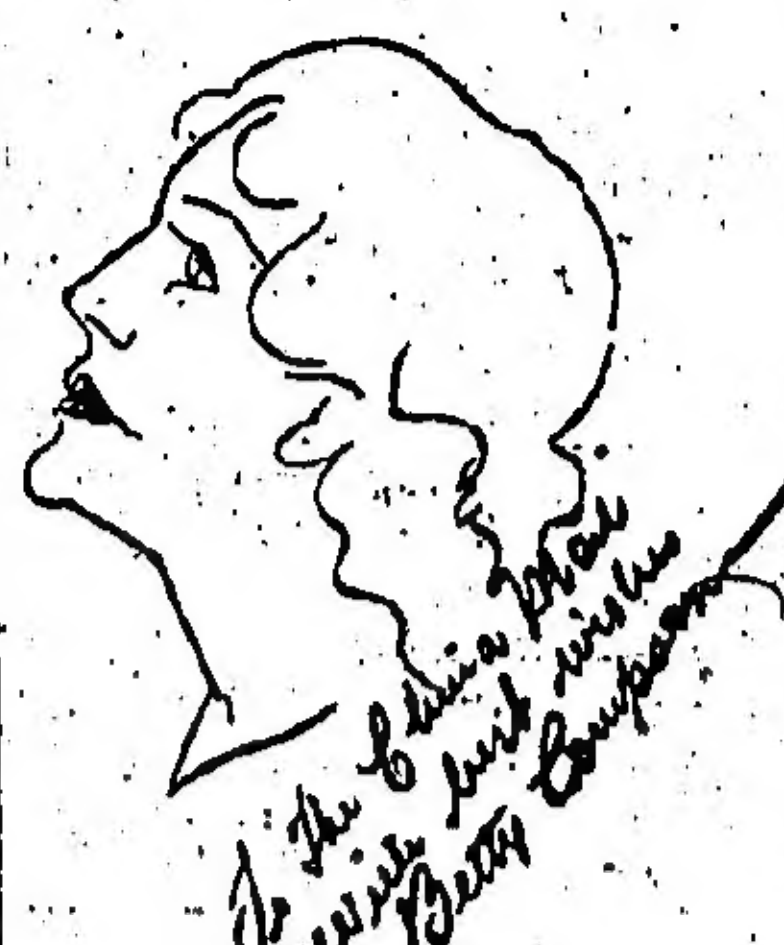 To The China Mail
with best wishes
Betty Compson